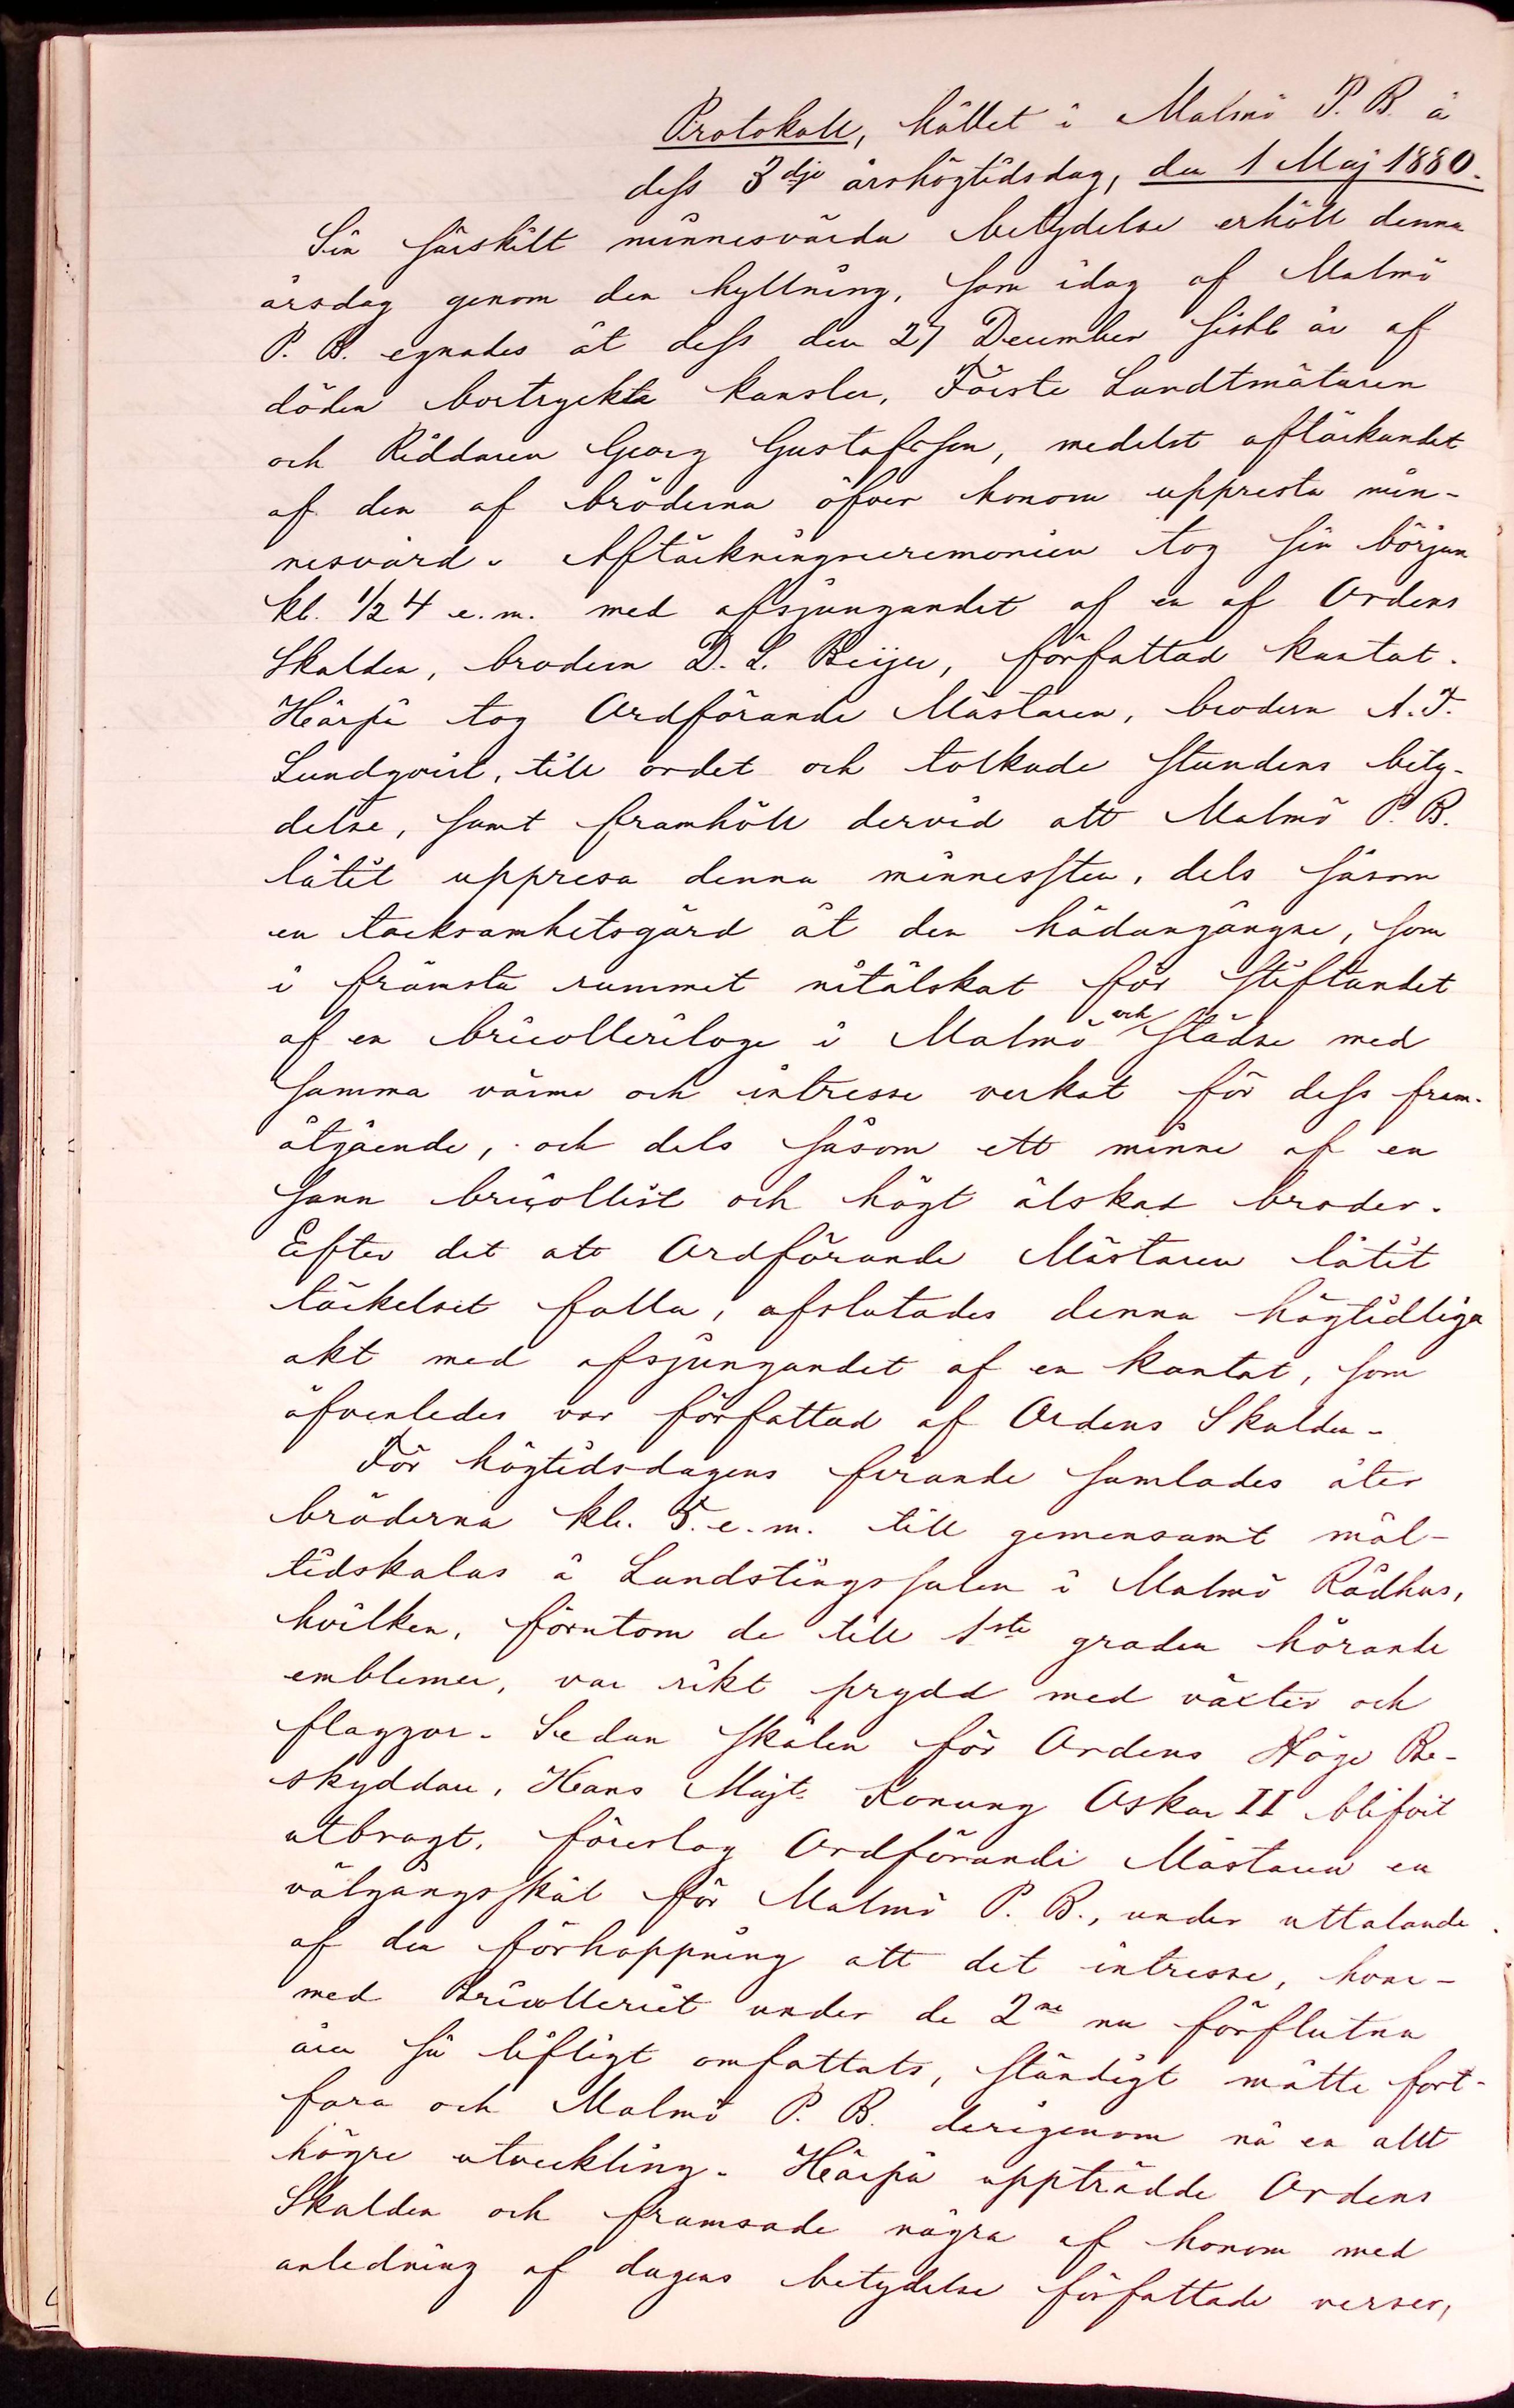 Protokoll, hållet i Malmö P. B. å
dess 3dje årshögtidsdag, den 1 Maj 1880.
Sin särskilt minnesvärda betydelse erhöll denna
årsdag genom den hyllning, som idag af Malmö
P. B. egnades åt dess den 27 December sistl. år af
döden bortryckte kansler, Förste Landtmätaren
och Riddaren Georg Gustafsson, medelst aftäckandet
af den af bröderna öfver honom uppresta min-
nesvård. Aftäckningsceremonien tog sin början
kl. 1/2 4 e.m. med afsjungandet af en af Ordens
Skalden, brodern D. L. Beijer, författad kantat.
Härpå tog Ordförande Mästaren, brodern A. F.
Lundqvist, till ordet och tolkade stundens bety-
delse, samt framhöll dervid att Malmö P. B.
låtit uppresa denna minnessten, dels såsom
en tacksamhetsgärd åt den hädangångne, som
i främsta rummet nitälskat för stiftandet
af en bricolleriloge i Malmö och städse med
samma värme och intresse verkat för dess fram-
åtgående, och dels såsom ett minne af en
sann bricollist och högt älskad broder.
Efter det att Ordförande Mästaren låtit
täckelset falla, afslutades denna högtidliga
akt med afsjungandet af en kantat, som
äfvenledes var författad af Ordens Skalden.
För högtidsdagens firande samlades åter
bröderna kl. 5. e.m. till gemensamt mål-
tidskalas å Landstingssalen i Malmö Rådhus,
hvilken, förutom de till 1sta graden hörande
emblemer, var rikt prydd med växter och
flaggor. Sedan skålen för Ordens Höge Be-
skyddare, Hans Majt. Konung Oskar II blifvit
utbragt, föreslog Ordförande Mästaren en
välgångsskål för Malmö P. B., under uttalande
af den förhoppning att det intresse, hvar-
med Bricolleriet under de 2ne nu förflutna
åren så lifligt omfattats, ständigt måtte fort-
fara och Malmö P. B. derigenom nå en allt
högre utveckling. Härpå uppträdde Ordens
Skalden och framsade några af honom med
anledning af dagens betydelse författade verser,